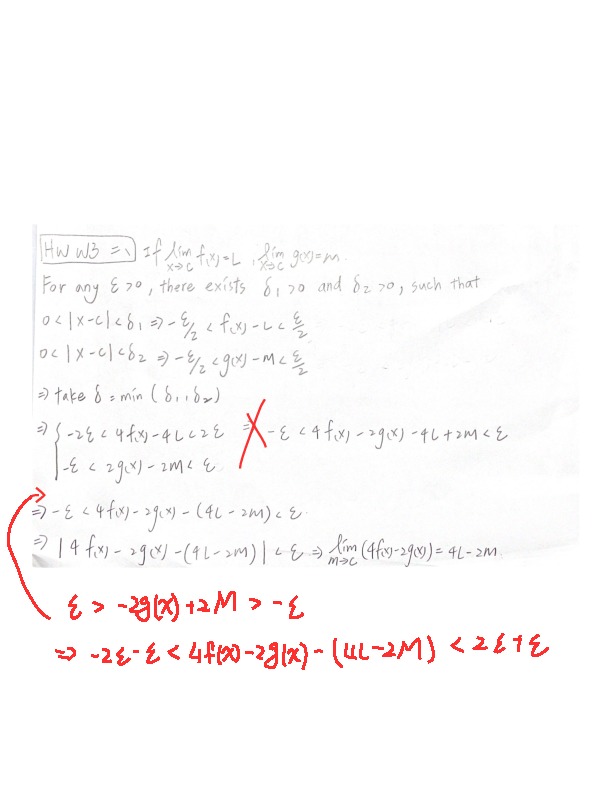 HW W3 二、 If lim x→c f(x)=L , lim x→c g(x)=M.
For any ε>0, there exists δ₁>0 and δ₂>0, such that
0<|x-c|<δ₁ ⇒ -ε/2 < f(x)-L < ε/2
0<|x-c|<δ₂ ⇒ -ε/2 < g(x)-M < ε/2
⇒ take δ = min (δ₁,δ₂)
⇒ { -2ε < 4f(x)-4L < 2ε ⇒ -ε < 4f(x)-2g(x)-4L+2M < ε
-ε < 2g(x)-2M < ε
⇒ -ε < 4f(x)-2g(x)-(4L-2M) < ε.
⇒ |4f(x)-2g(x)-(4L-2M)| < ε ⇒ lim m→c (4f(x)-2g(x)) = 4L-2M
ε > -2g(x)+2M > -ε
⇒ -2ε-ε < 4f(x)-2g(x)-(4L-2M) < 2ε+ε